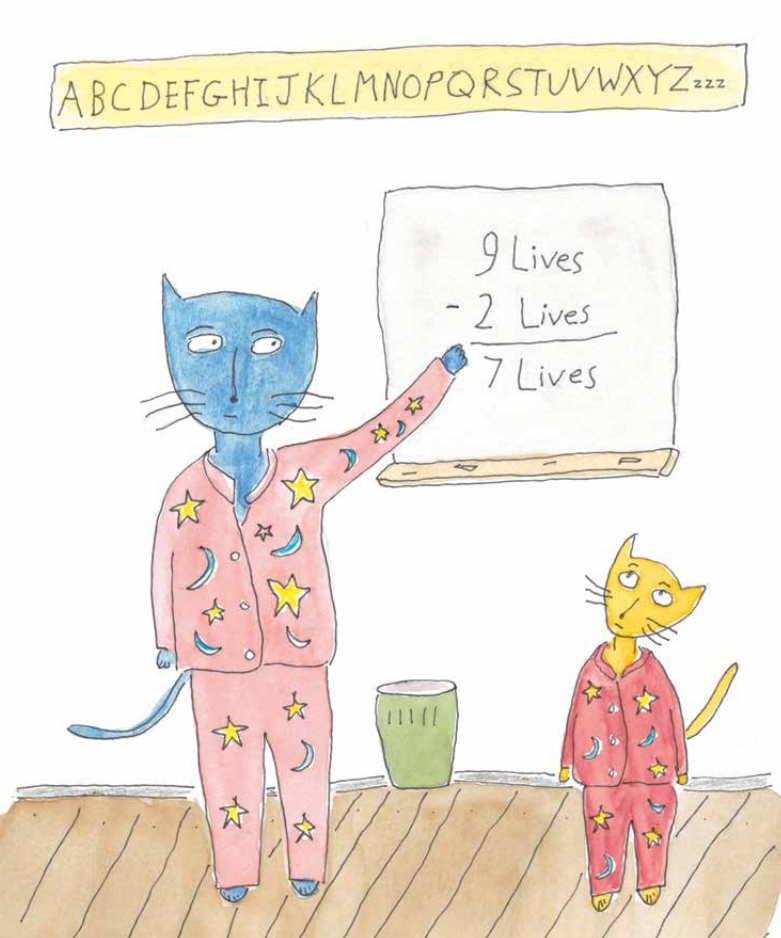 ABCDEFGHIJKLMNOPQRSTUVWXYZzzz
9 Lives
- 2 Lives
7 Lives